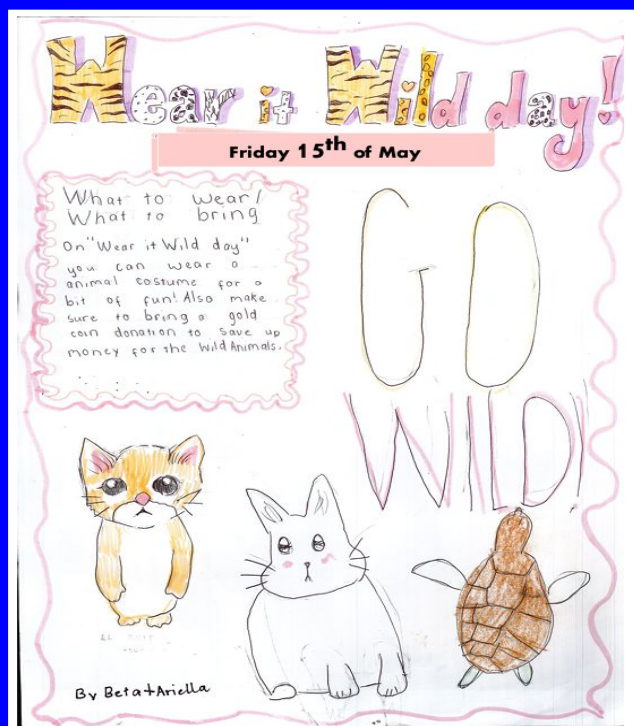 Wear it Wild day!
Friday 15th of May
What to wear/
What to bring
On "Wear it Wild day"
you can wear a
animal costume for a
bit of fun! Also make
sure to bring a gold
coin donation to save up
money for the Wild Animals.
GO
WILD!
By Beta+Ariella